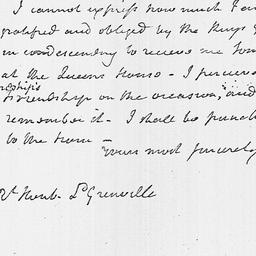 I cannot express how much I am
gratified and obliged by the Kings
in condescending to receive me
at the Queens House - I perceive
rdship's
friendship on the occasion, and
remember it - I shall be punct
to the hour -
yours most sincerely
Rt Honb. Ld Grenville